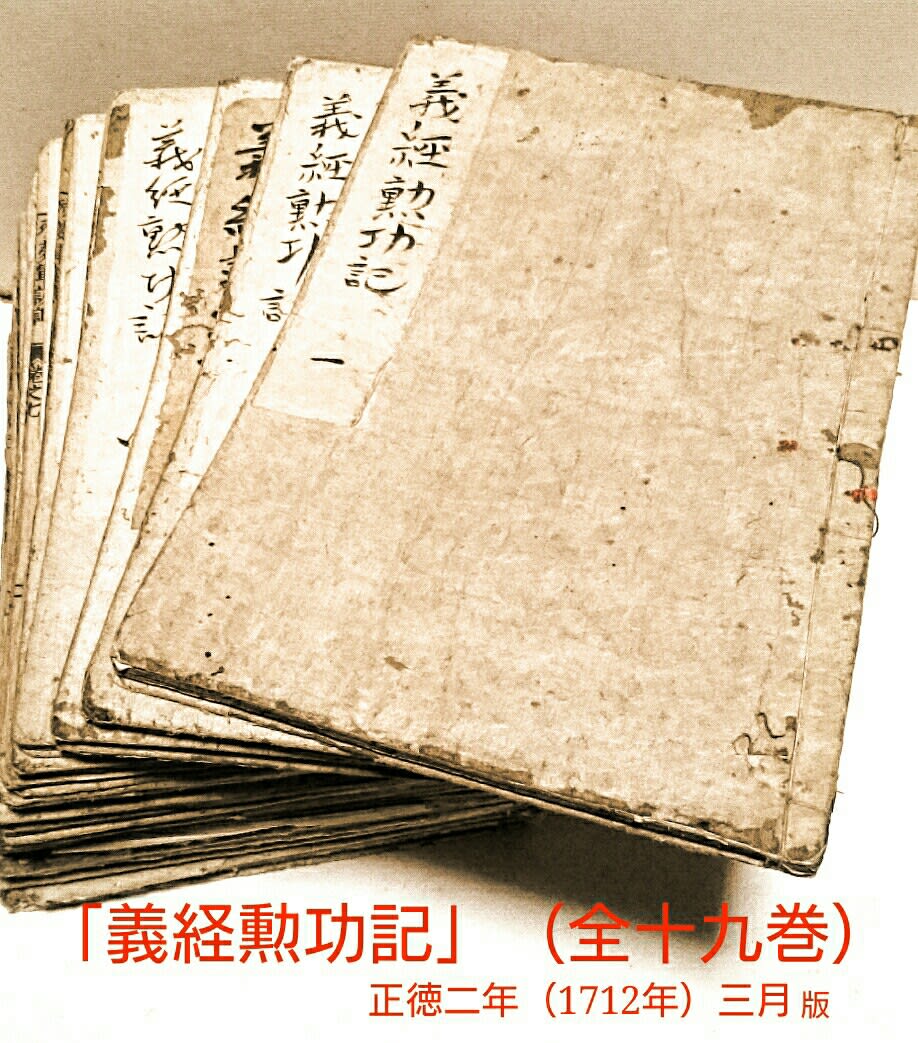 義経勲功記
一
義経勲功記
義経勲功記
「義経勲功記」（全十九巻）
正徳二年（1712年）三月版